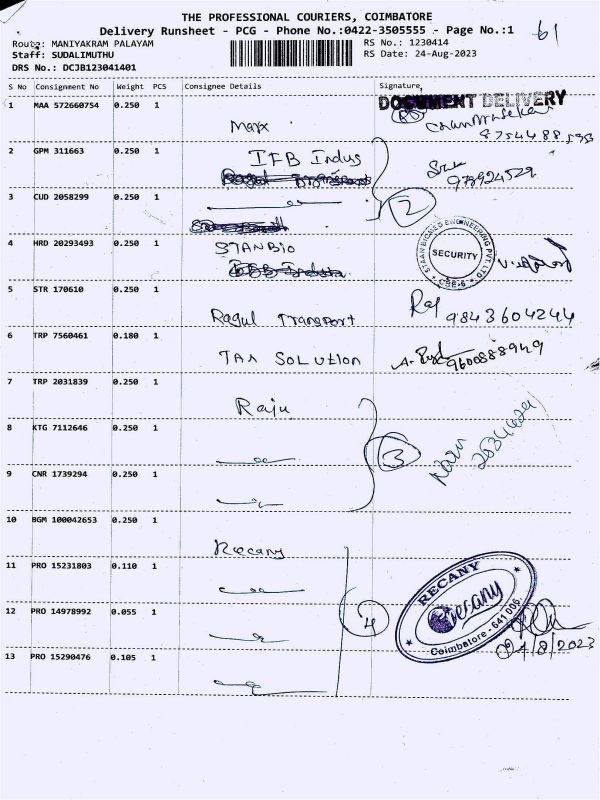 THE PROFESSIONAL COURIERS, COIMBATORE
Delivery Runsheet - PCG - Phone No.:0422-3505555 - Page No.:1
61
Route: MANIYAKRAM PALAYAM RS No.: 1230414
Staff: SUDALIMUTHU RS Date: 24-Aug-2023
DRS No.: DCJB123041401
S No Consignment No Weight PCS Consignee Details Signature,
DOCUMENT DELIVERY
1 MAA 572660754 0.250 1
Marx
2 GPM 311663 0.250 1 IFB Indus
3 CUD 2058299 0.250 1
2
4 HRD 20293493 0.250 1 STANBIO
STAAN BIOMED ENGINEERING PVT. LTD
SECURITY
CBE-6
5 STR 170610 0.250 1
Ragul Transport Raj 9843604244
6 TRP 7560461 0.180 1
Tax Solution 9600888949
7 TRP 2031839 0.250 1
Raju
8 KTG 7112646 0.250 1
3
9 CNR 1739294 0.250 1
10 BGM 100042653 0.250 1
Recany
11 PRO 15231803 0.110 1
RECANY
Recany
Coimbatore - 641 006.
12 PRO 14978992 0.055 1
4
24/8/2023
13 PRO 15290476 0.105 1